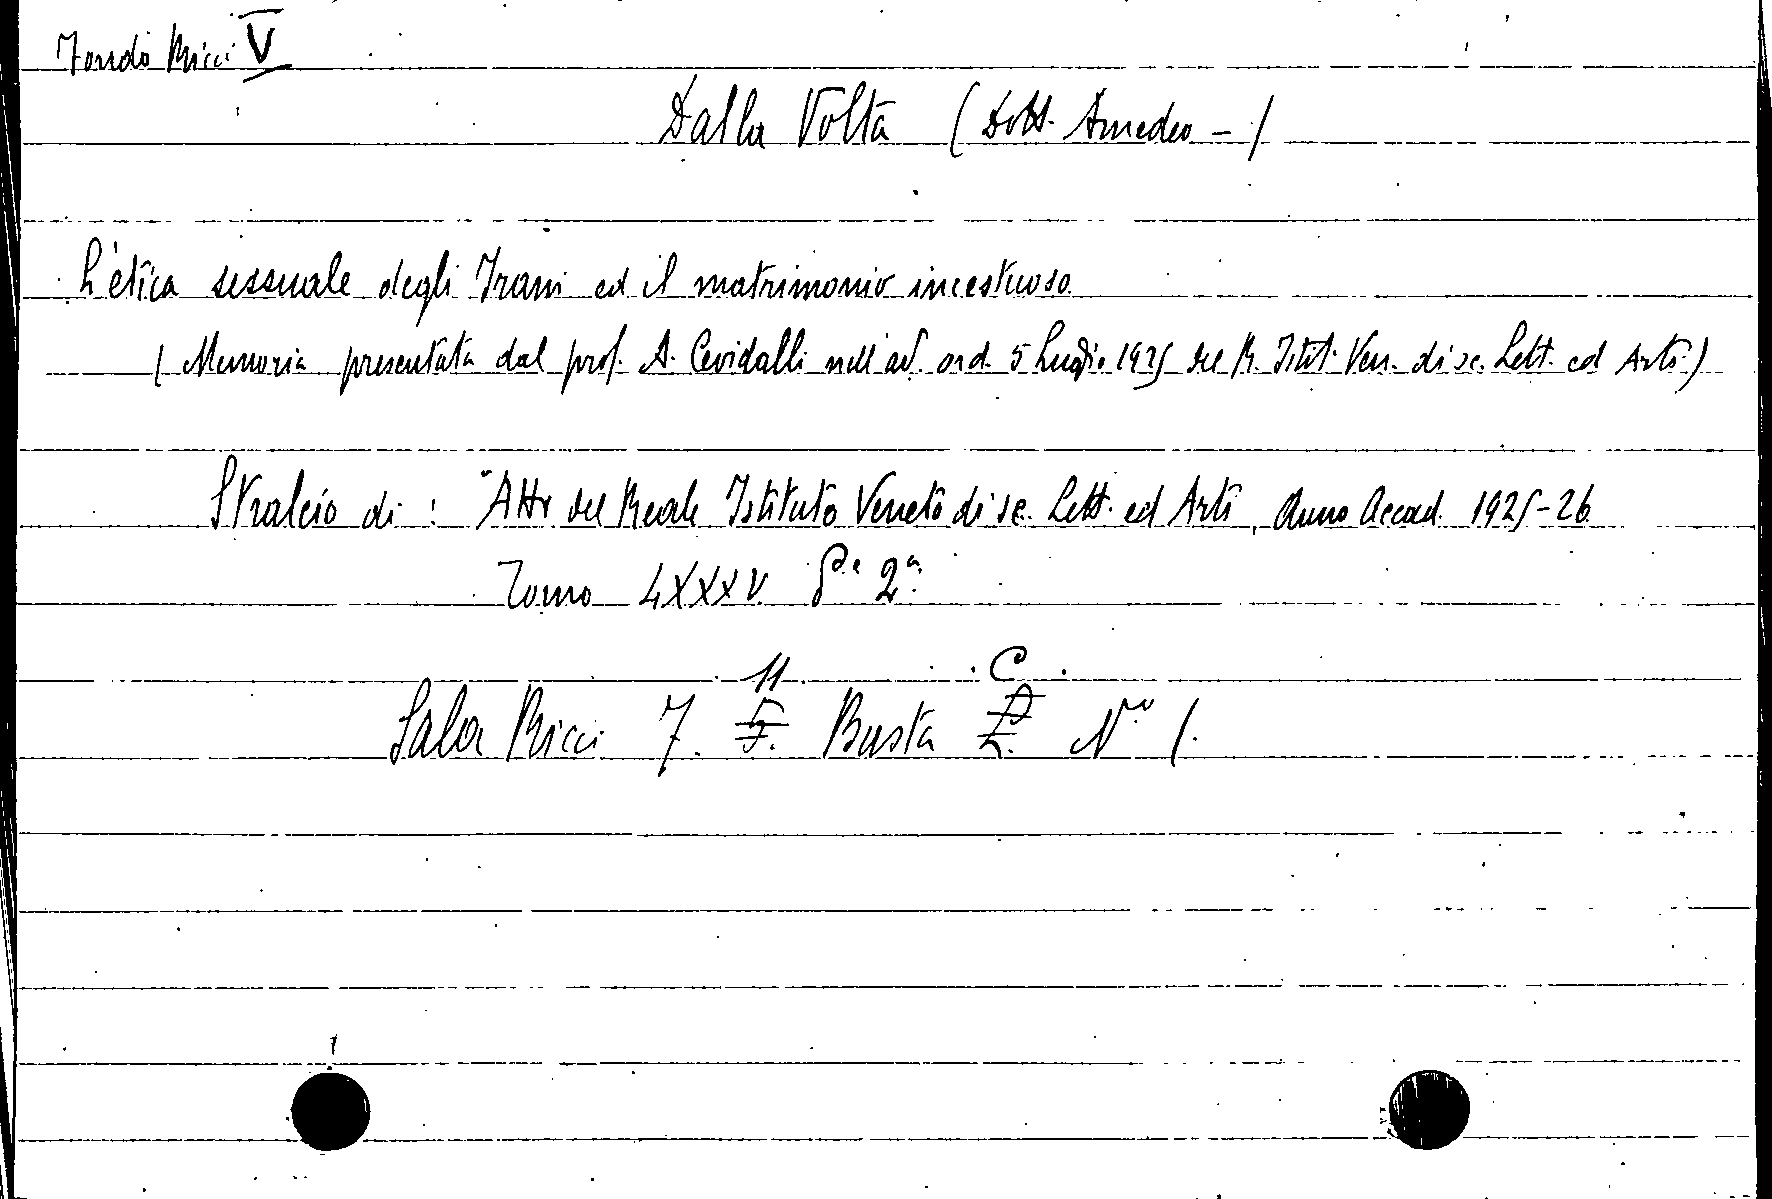 Fondo Ricci V
Dalla Volta (Dott. Amedeo -)
L'etica sessuale degli Irani ed il matrimonio incestuoso.
(Memoria presentata dal prof. A. Cevidalli nell'ad. ord. 5 Luglio 1925 del R. Istit. Ven. di sc. Lett. ed Arti)
Stralcio di: "Atti del Reale Istituto Veneto di sc. Lett. ed Arti, Anno Accad. 1925-26
Tomo LXXXV Pe 2a.
11 C
Sala Ricci 7. Busta No 1.